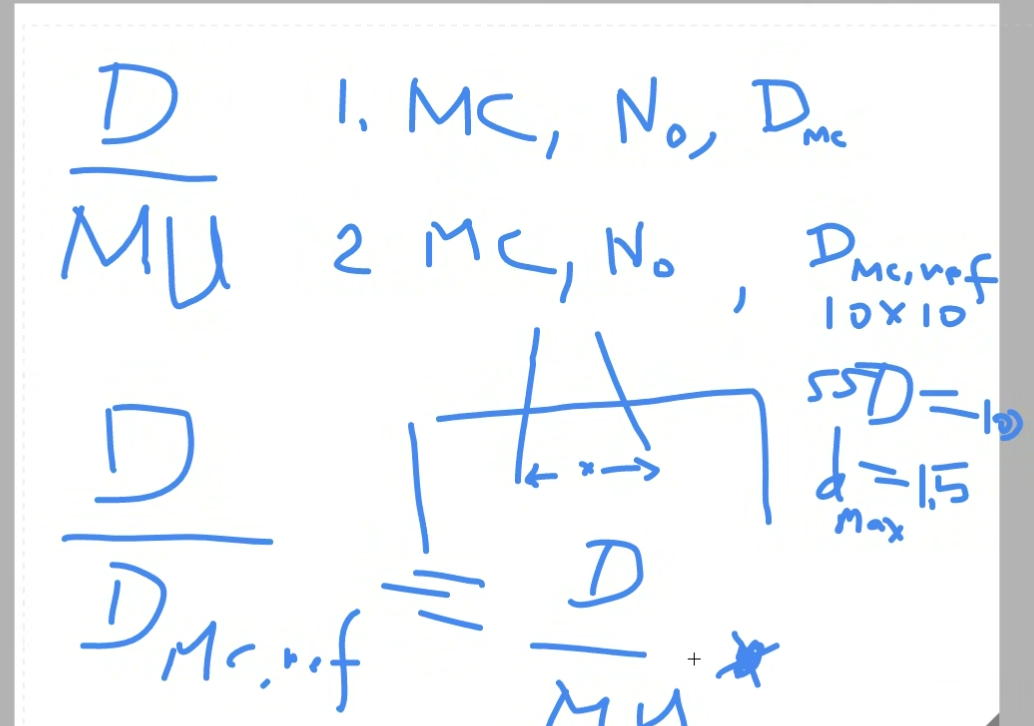 D 1. MC, N₀, D_MC
MU 2 MC, N₀, D_MC,ref
10×10
SSD = 100
d_max = 1.5
x
D
D_MC,ref
≡ D
MU